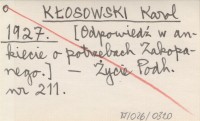 KŁOSOWSKI Karol
1927. [Odpowiedź w an-
kiecie o potrzebach Zakopa-
nego.] — Życie Podh.
nr 211.